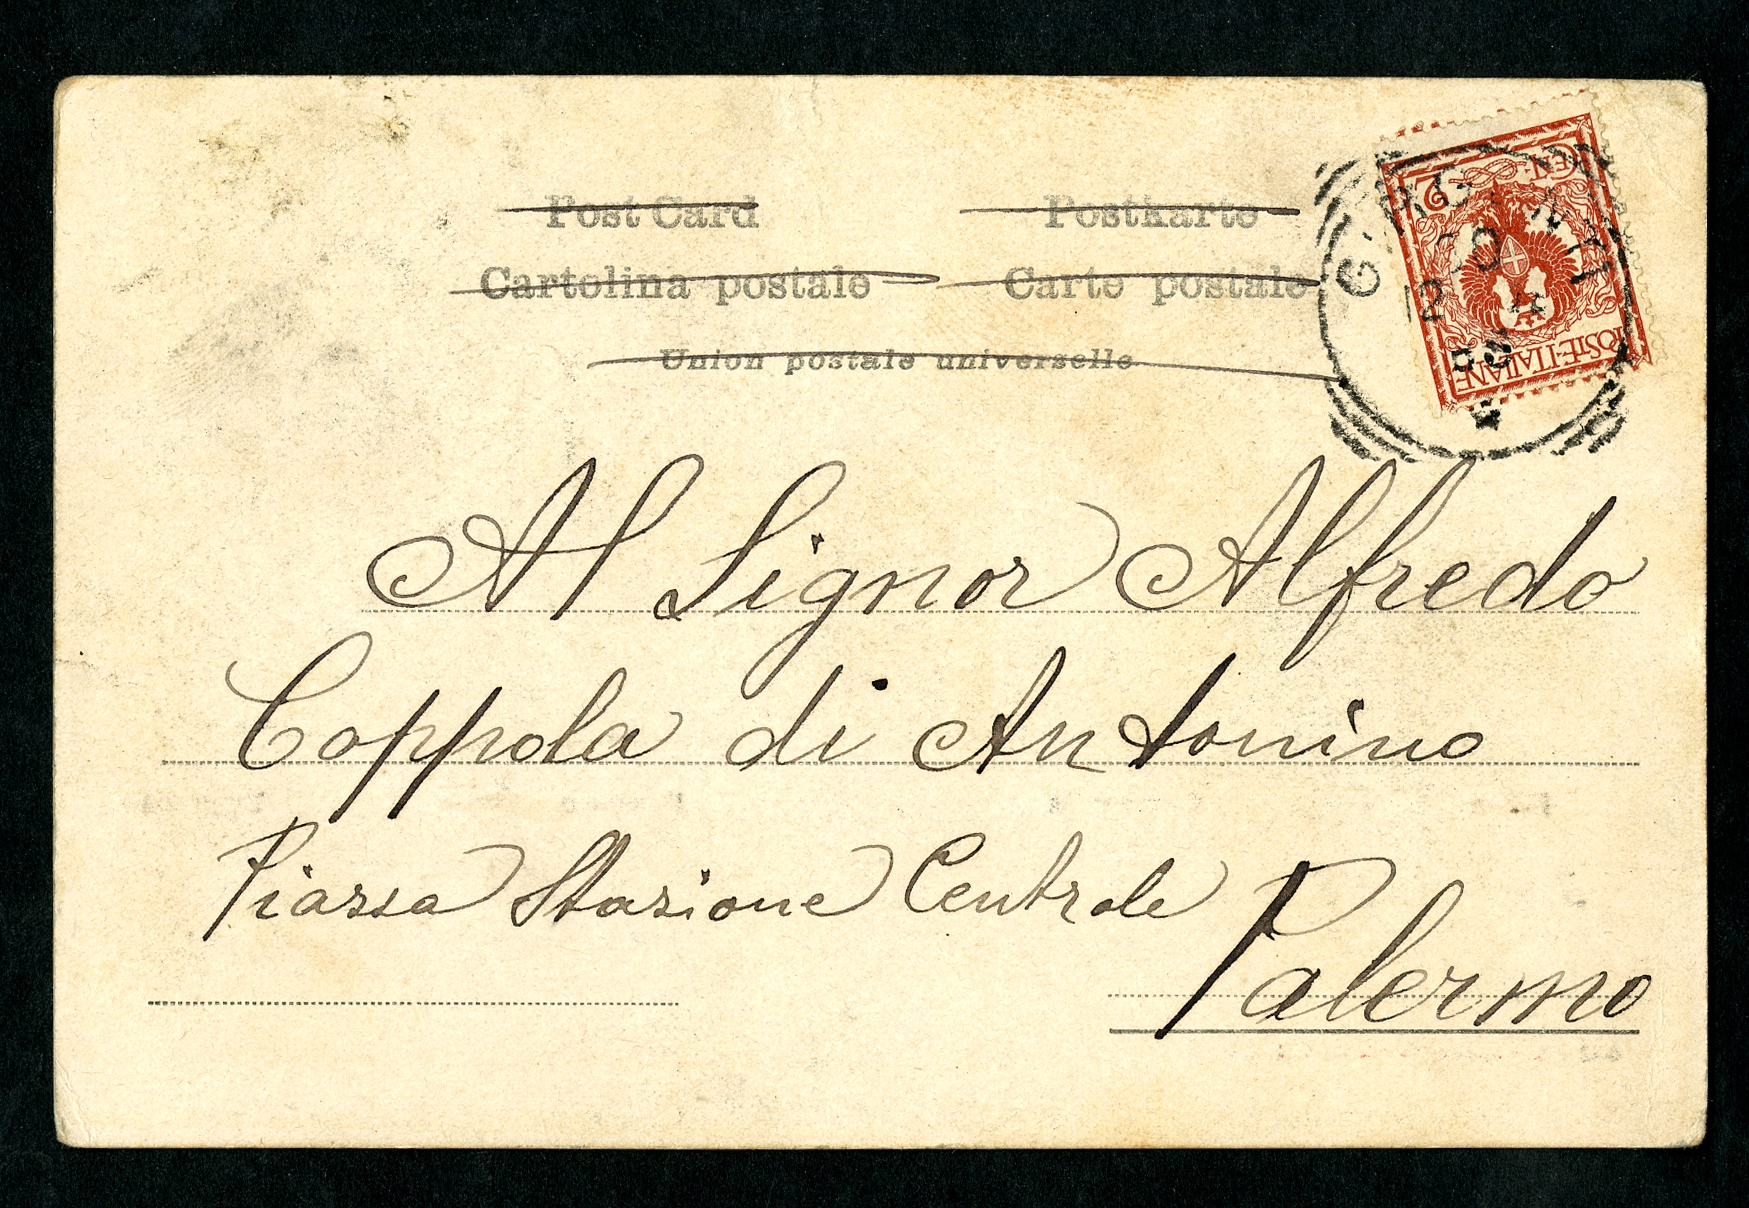 Post Card Postkarte
Cartolina postale Carte postale
Union postale universelle
CEN. 2
POSTE·ITALIANE
GIRGENTI
Al Signor Alfredo
Coppola di Antonino
Piazza Stazione Centrale
Palermo